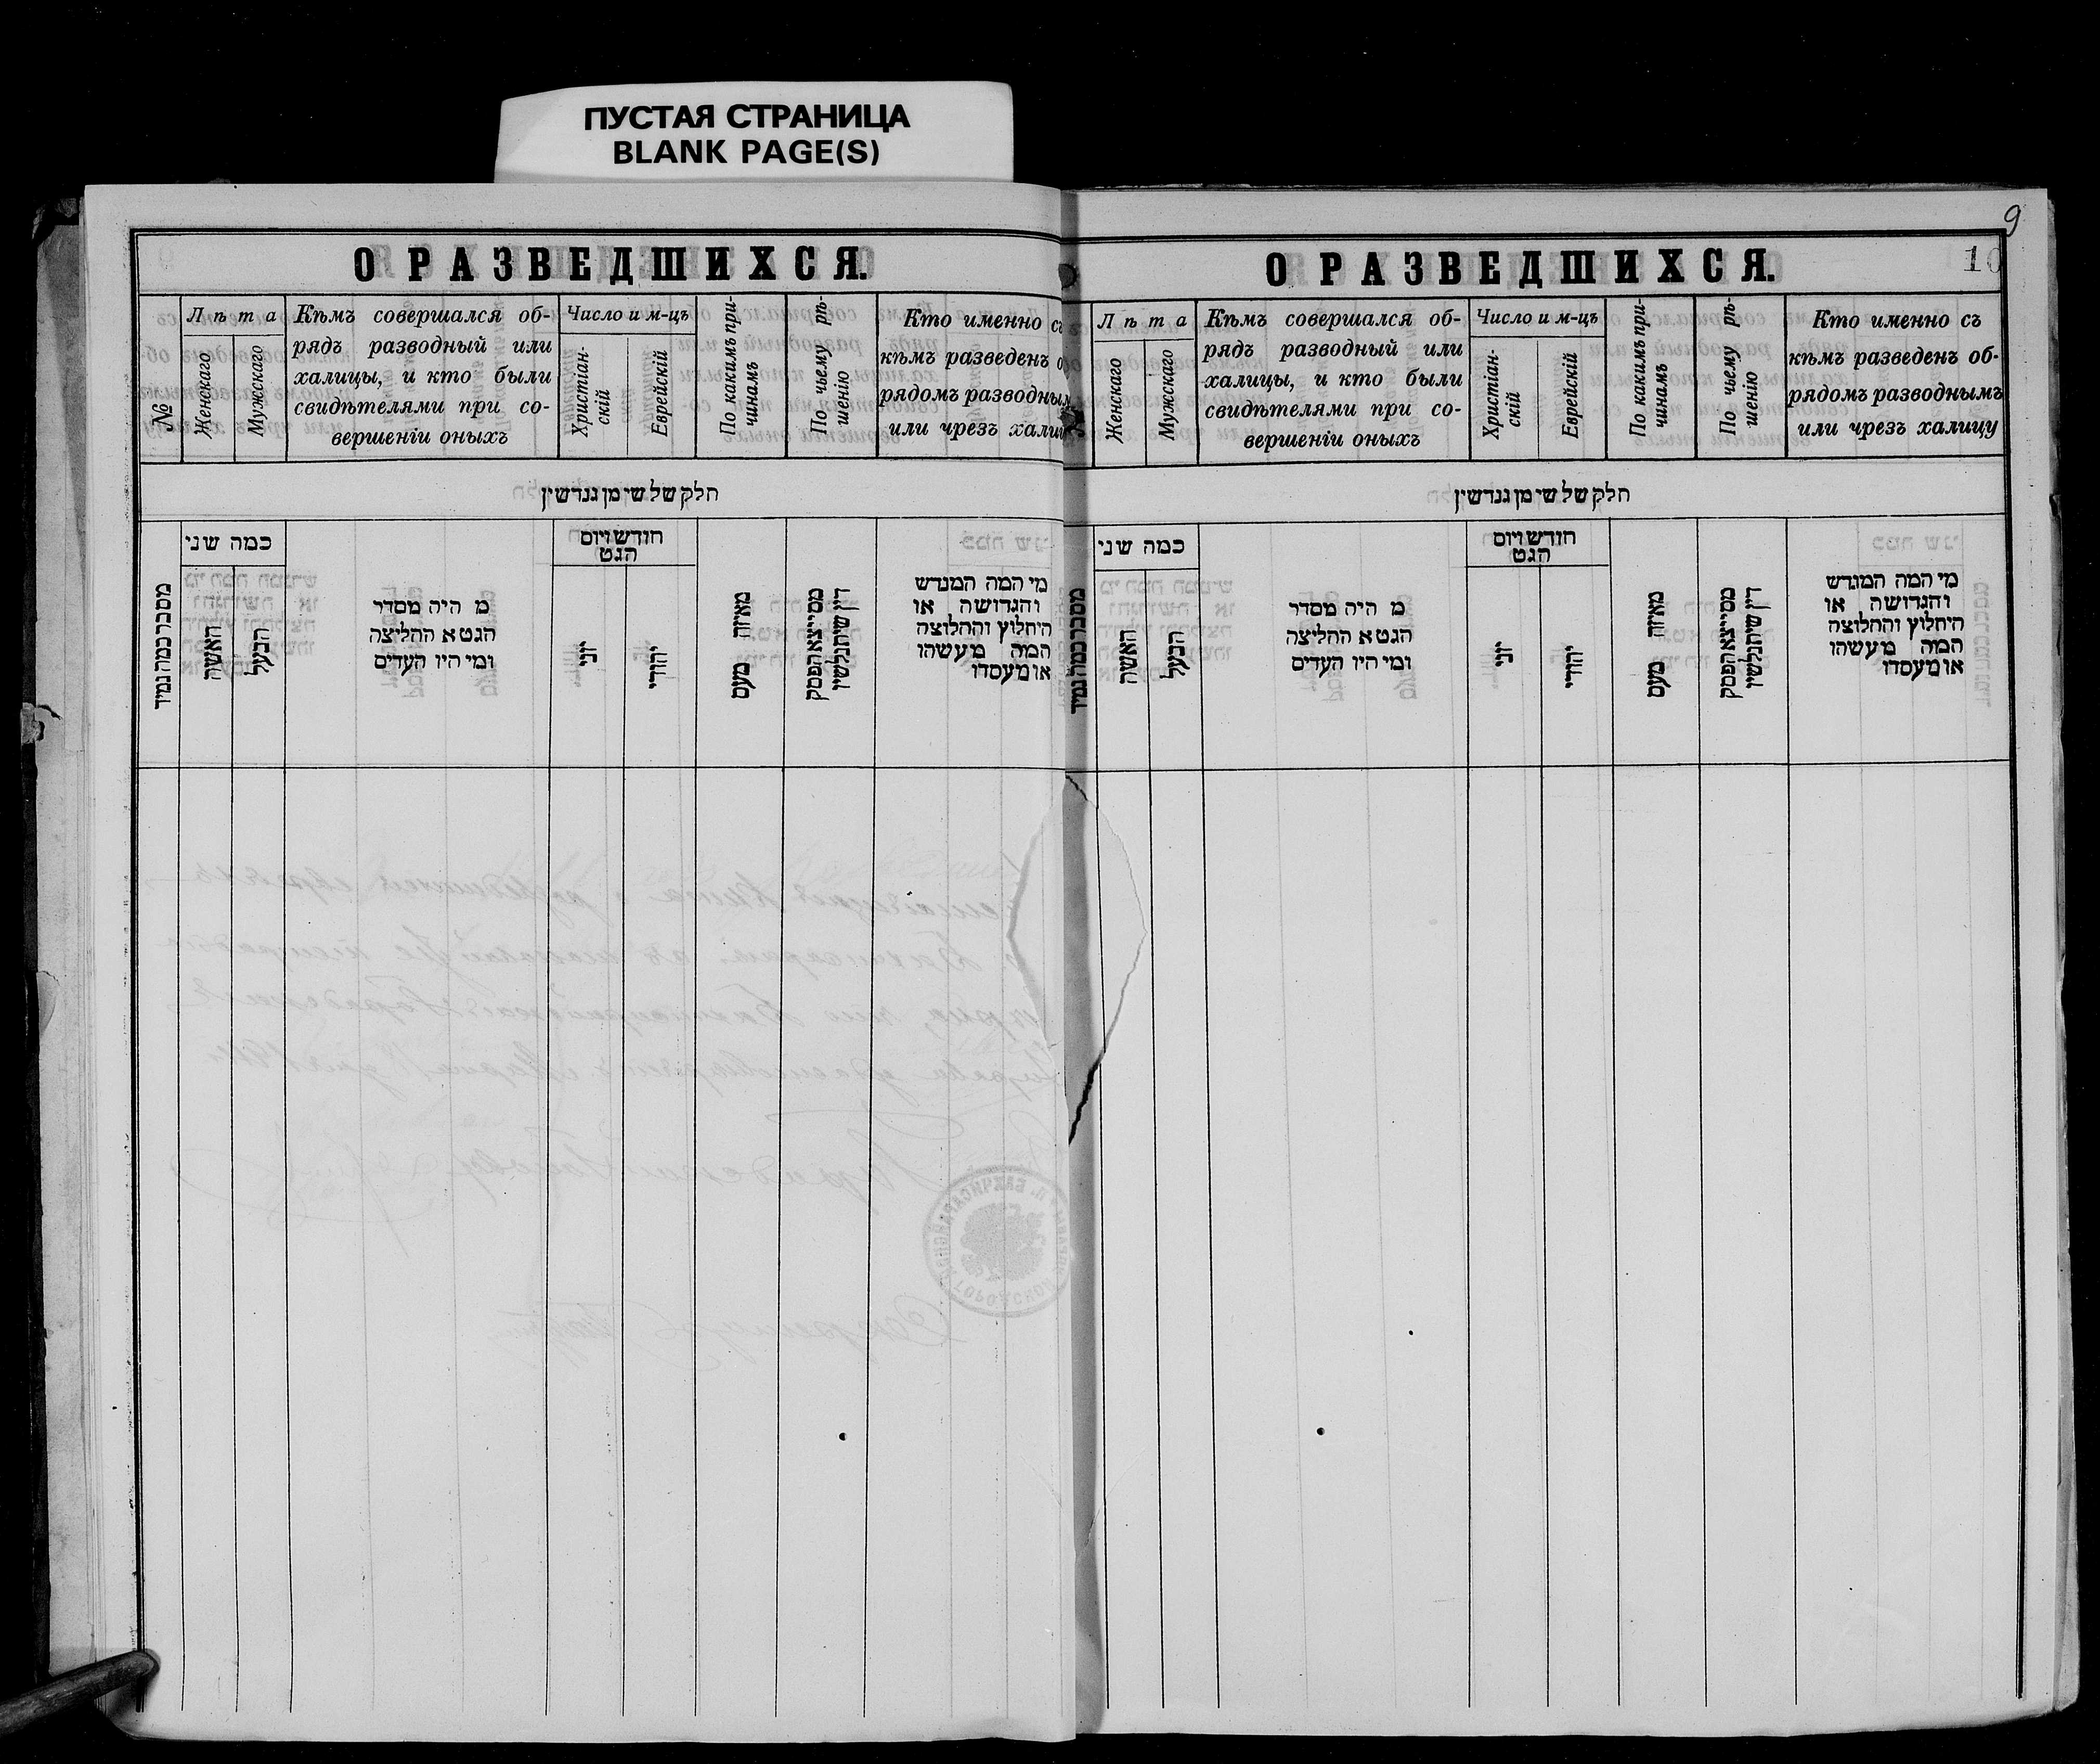 ПУСТАЯ СТРАНИЦА
BLANK PAGE(S)
О РАЗВЕДШИХСЯ.
№
Лѣта
Женскаго
Мужскаго
Кѣмъ совершался об-
рядъ разводный или
халицы, и кто были
свидѣтелями при со-
вершеніи оныхъ
Число и м-цъ
Христіан-
скій
Еврейскій
По какимъ при-
чинамъ
По чьему рѣ-
шенію
Кто именно съ
кѣмъ разведенъ о
рядомъ разводным
или чрезъ хали
חלק של שי מן גנדשין
מספר כמה נמיר
כמה שני
האשה
הבעל
מ היה מסדר
הגט א ההליצה
ומי היו העדים
חודש ויום
הגט
יוני
יהודי
מאיזה מעם
מי המה המגדש
והגדושה או
היחלוץ והחלוצה
המה מעשהו
או מעסדו
9
10
О РАЗВЕДШИХСЯ.
Лѣта
Женскаго
Мужскаго
Кѣмъ совершался об-
рядъ разводный или
халицы, и кто были
свидѣтелями при со-
вершеніи оныхъ
Число и м-цъ
Христіан-
скій
Еврейскій
По какимъ при-
чинамъ
По чьему рѣ-
шенію
Кто именно съ
кѣмъ разведенъ об-
рядомъ разводнымъ
или чрезъ халицу
חלק של שי מן גנדשין
מספר כמה נמיר
כמה שני
האשה
הבעל
מ היה מסדר
הגט א ההליצה
ומי היו העדים
חודש ויום
הגט
יוני
יהודי
מאיזה מעם
מי המה המגדש
והגדושה או
היחלוץ והחלוצה
המה מעשהו
או מעסדו